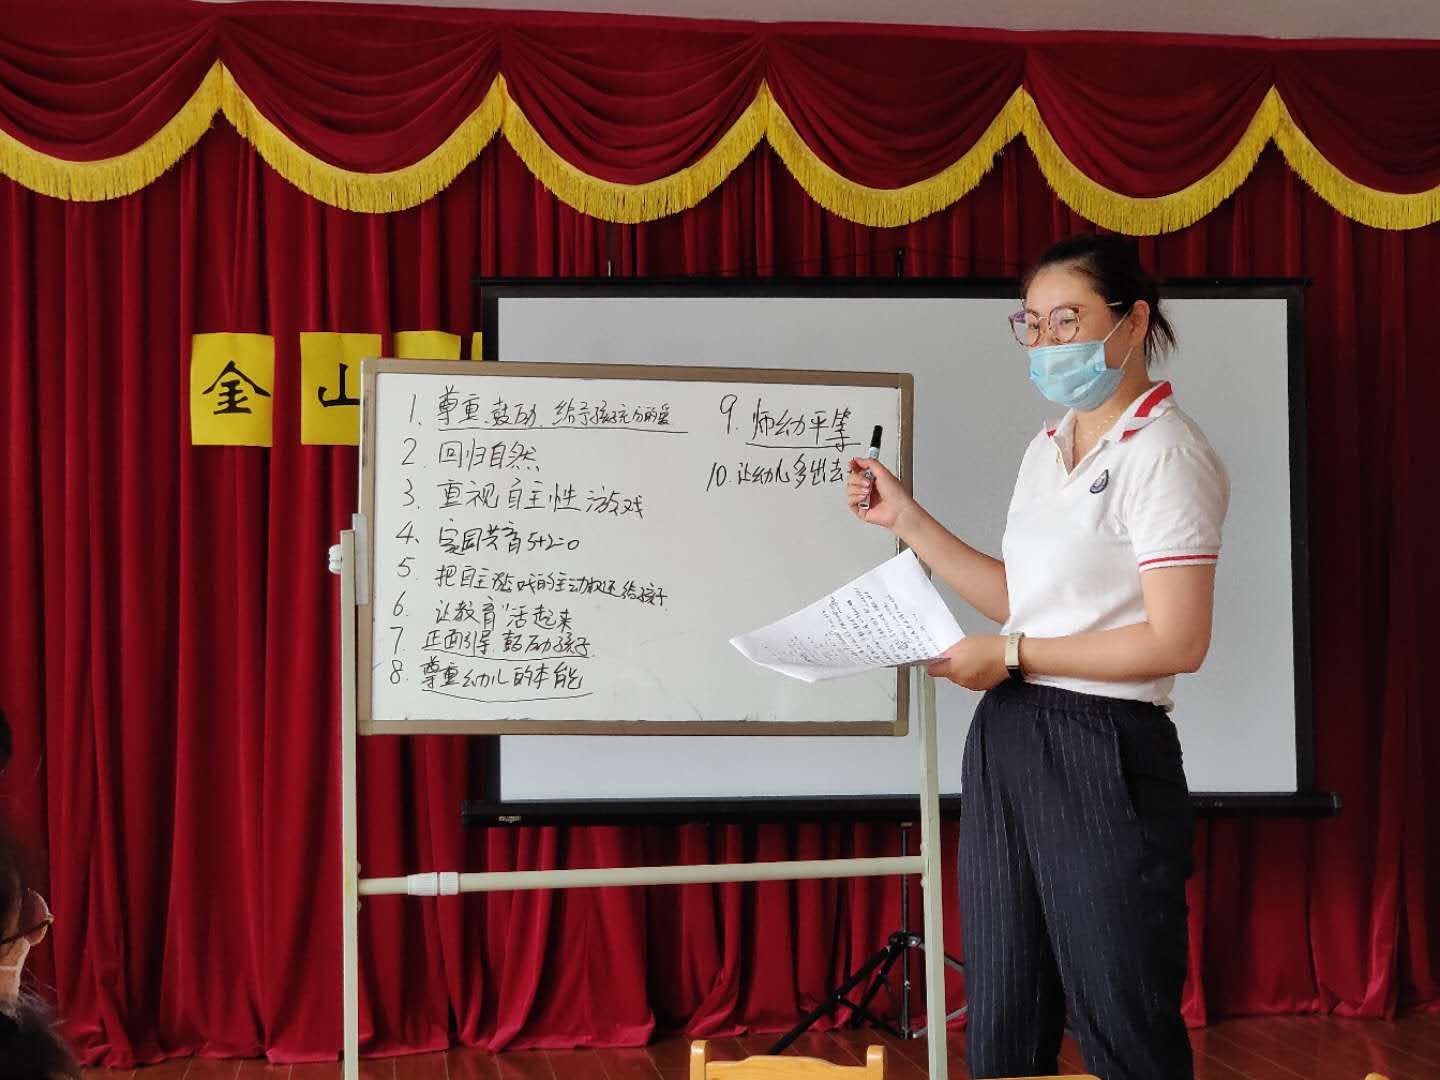 金山
1、尊重、鼓励、给予孩子充分的爱
2、回归自然
3、重视自主性游戏
4、家园共育5+2=0
5、把自主游戏的主动权还给孩子
6、让教育“活起来
7、正面引导、鼓励孩子
8、尊重幼儿的本能
9、师幼平等
10、让幼儿多出去